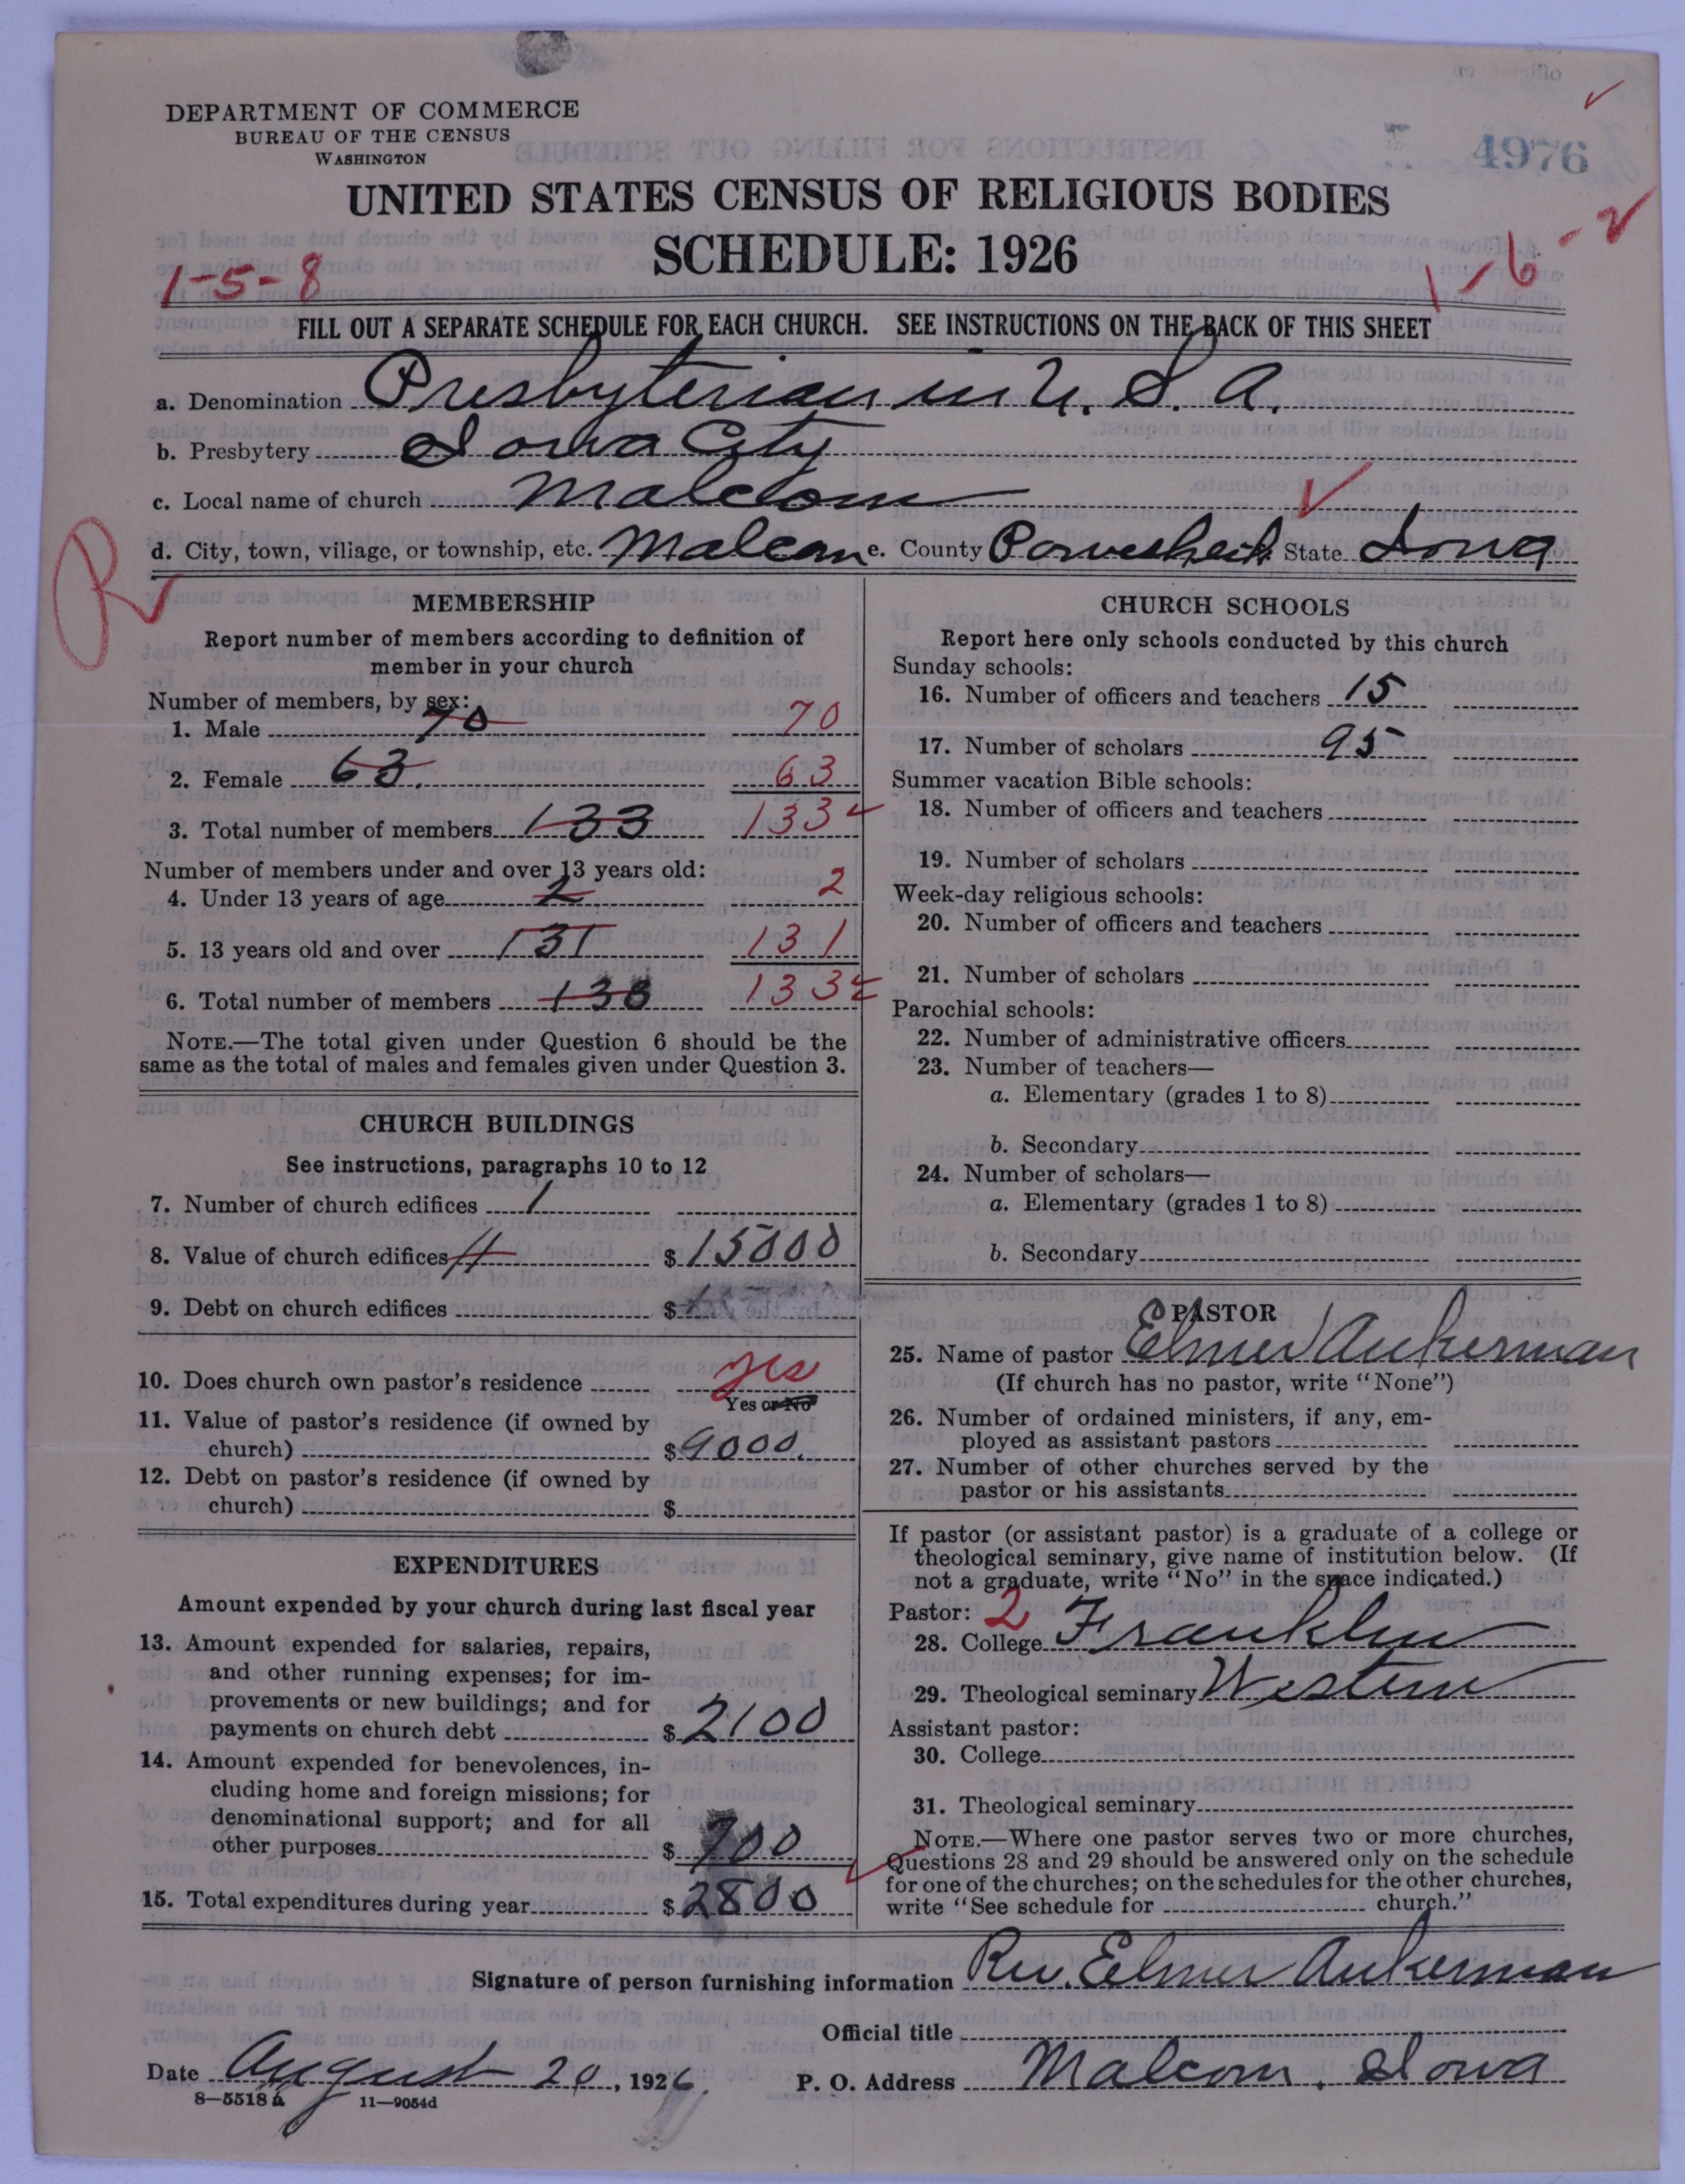 DEPARTMENT OF COMMERCE
BUREAU OF THE CENSUS
WASHINGTON
4976
UNITED STATES CENSUS OF RELIGIOUS BODIES
SCHEDULE: 1926
1-5-8
1-6-
FILL OUT A SEPARATE SCHEDULE FOR EACH CHURCH. SEE INSTRUCTIONS ON THE BACK OF THIS SHEET
a. Denomination Presbyterian in U. S. A.
b. Presbytery Iowa City
c. Local name of church Malcom
d. City, town, village, or township, etc. Malcom e. County Poweshiek State Iowa
R
MEMBERSHIP
Report number of members according to definition of
member in your church
Number of members, by sex:
1. Male 70 70
2. Female 63. 63
3. Total number of members 133 133
Number of members under and over 13 years old:
4. Under 13 years of age 2 2
5. 13 years old and over 131 131
6. Total number of members 133 133
NOTE.—The total given under Question 6 should be the
same as the total of males and females given under Question 3.
CHURCH BUILDINGS
See instructions, paragraphs 10 to 12
7. Number of church edifices 1
8. Value of church edifices $ 15000
9. Debt on church edifices $
10. Does church own pastor's residence yes
Yes or No
11. Value of pastor's residence (if owned by
church) $ 9000.
12. Debt on pastor's residence (if owned by
church) $
EXPENDITURES
Amount expended by your church during last fiscal year
13. Amount expended for salaries, repairs,
and other running expenses; for im-
provements or new buildings; and for
payments on church debt $ 2100
14. Amount expended for benevolences, in-
cluding home and foreign missions; for
denominational support; and for all
other purposes $ 700
15. Total expenditures during year $ 2800
CHURCH SCHOOLS
Report here only schools conducted by this church
Sunday schools:
16. Number of officers and teachers 15
17. Number of scholars 95
Summer vacation Bible schools:
18. Number of officers and teachers
19. Number of scholars
Week-day religious schools:
20. Number of officers and teachers
21. Number of scholars
Parochial schools:
22. Number of administrative officers
23. Number of teachers—
a. Elementary (grades 1 to 8)
b. Secondary
24. Number of scholars—
a. Elementary (grades 1 to 8)
b. Secondary
PASTOR
25. Name of pastor Elmer Ankerman
(If church has no pastor, write "None")
26. Number of ordained ministers, if any, em-
ployed as assistant pastors
27. Number of other churches served by the
pastor or his assistants
If pastor (or assistant pastor) is a graduate of a college or
theological seminary, give name of institution below. (If
not a graduate, write "No" in the space indicated.)
Pastor: 2
28. College Franklin
29. Theological seminary Western
Assistant pastor:
30. College
31. Theological seminary
NOTE.—Where one pastor serves two or more churches,
Questions 28 and 29 should be answered only on the schedule
for one of the churches; on the schedules for the other churches,
write "See schedule for church."
Signature of person furnishing information Rev. Elmer Ankerman
Official title
Date August 20, 1926.
P. O. Address Malcom, Iowa
8-5518 a 11-9054d